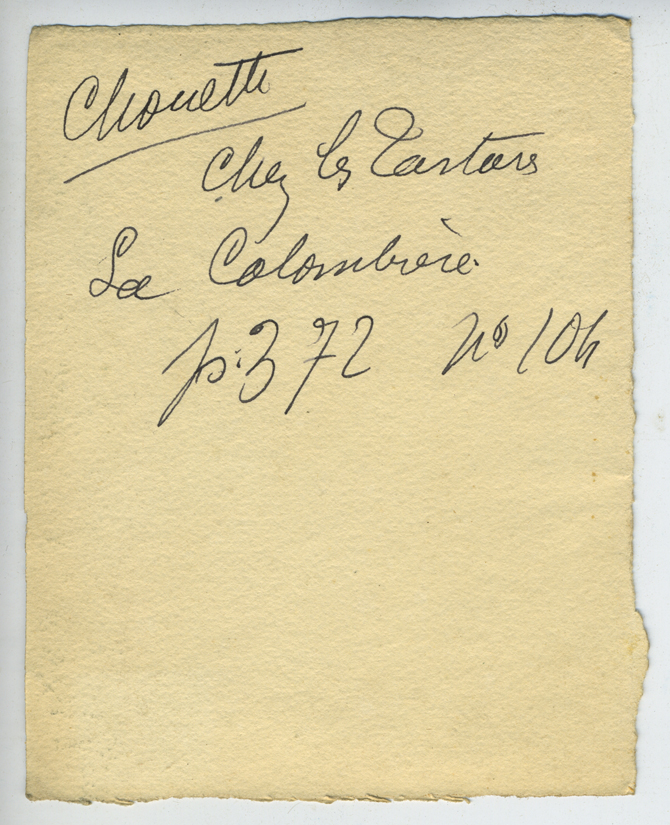 Chouette
chez les Tartares
La Colombière
p. 372 no 104